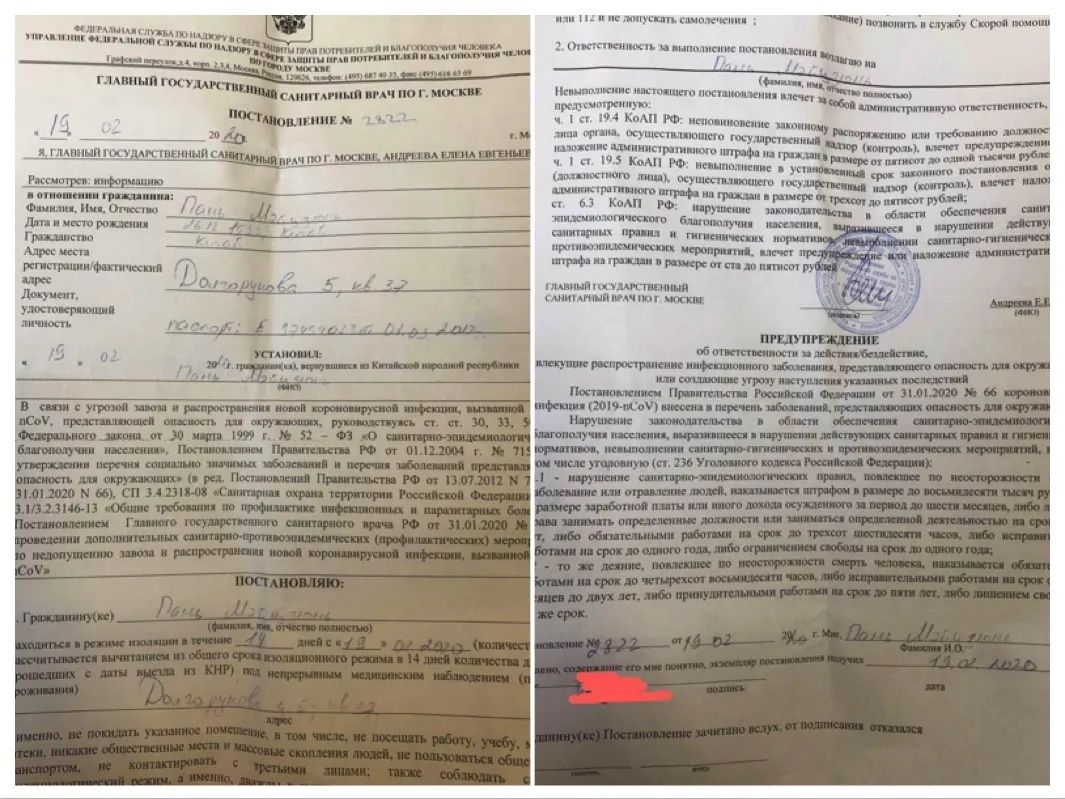 ФЕДЕРАЛЬНАЯ СЛУЖБА ПО НАДЗОРУ В СФЕРЕ ЗАЩИТЫ ПРАВ ПОТРЕБИТЕЛЕЙ И БЛАГОПОЛУЧИЯ ЧЕЛОВЕКА
УПРАВЛЕНИЕ ФЕДЕРАЛЬНОЙ СЛУЖБЫ ПО НАДЗОРУ В СФЕРЕ ЗАЩИТЫ ПРАВ ПОТРЕБИТЕЛЕЙ И БЛАГОПОЛУЧИЯ ЧЕЛОВ
ПО ГОРОДУ МОСКВЕ
Графский переулок,д.4, корп. 2,3,4, Москва, Россия, 129626, телефон: (495) 687 40 35, факс (495) 616 65 69
ГЛАВНЫЙ ГОСУДАРСТВЕННЫЙ САНИТАРНЫЙ ВРАЧ ПО Г. МОСКВЕ
ПОСТАНОВЛЕНИЕ № 2822
« 19 02 2020 г. М
Я, ГЛАВНЫЙ ГОСУДАРСТВЕННЫЙ САНИТАРНЫЙ ВРАЧ ПО Г. МОСКВЕ, АНДРЕЕВА ЕЛЕНА ЕВГЕНЬЕВ
Рассмотрев: информацию
в отношении гражданина:
Фамилия, Имя, Отчество Пань
Дата и место рождения Китай
Гражданство Китай
Адрес места
регистрации/фактический
адрес Долгорукова 5, кв 37
Документ,
удостоверяющий
личность паспорт: Е
УСТАНОВИЛ:
« 19 » 02 г. гражданина(ка), вернувшиеся из Китайской народной республики
Пань
(ФИО)
В связи с угрозой завоза и распространения новой коронавирусной инфекции, вызванной
nCoV, представляющей опасность для окружающих, руководствуясь ст. ст. 30, 33, 5
Федерального закона от 30 марта 1999 г. № 52 – ФЗ «О санитарно-эпидемиологич
благополучии населения», Постановлением Правительства РФ от 01.12.2004 г. № 715
утверждении перечня социально значимых заболеваний и перечня заболеваний представля
опасность для окружающих» (в ред. Постановлений Правительства РФ от 13.07.2012 N 7
31.01.2020 N 66), СП 3.4.2318-08 «Санитарная охрана территории Российской Федерации
3.1/3.2.3146-13 «Общие требования по профилактике инфекционных и паразитарных боле
Постановлением Главного государственного санитарного врача РФ от 31.01.2020 №
проведении дополнительных санитарно-противоэпидемических (профилактических) мероп
по недопущению завоза и распространения новой коронавирусной инфекции, вызванной
nCoV»
ПОСТАНОВЛЯЮ:
. Гражданину(ке) Пань
(фамилия, имя, отчество полностью)
аходиться в режиме изоляции в течение 14 дней с « 19 » 02 2020 (количество
рассчитывается вычитанием из общего срока изоляционного режима в 14 дней количества д
рошедших с даты выезда из КНР) под непрерывным медицинским наблюдением (п
роживания)
Долгорукова д 5, кв 37
адрес
именно, не покидать указанное помещение, в том числе, не посещать работу, учебу, м
теки, никакие общественные места и массовые скопления людей, не пользоваться обще
анспортом, не контактировать с третьими лицами; также соблюдать с
режим, а именно, дважды в
или 112 и не допускать самолечения ; позвонить в службу Скорой помощи
2. Ответственность за выполнение постановления возлагаю на
Пань
(фамилия, имя, отчество полностью)
Невыполнение настоящего постановления влечет за собой административную ответственность,
предусмотренную:
ч. 1 ст. 19.4 КоАП РФ: неповиновение законному распоряжению или требованию должнос
лица органа, осуществляющего государственный надзор (контроль), влечет предупреждение
наложение административного штрафа на граждан в размере от пятисот до одной тысячи рубле
ч. 1 ст. 19.5 КоАП РФ: невыполнение в установленный срок законного постановления о
(должностного лица), осуществляющего государственный надзор (контроль), влечет налож
административного штрафа на граждан в размере от трехсот до пятисот рублей;
ст. 6.3 КоАП РФ: нарушение законодательства в области обеспечения санит
эпидемиологического благополучия населения, выразившееся в нарушении действую
санитарных правил и гигиенических нормативов, невыполнении санитарно-гигиенически
противоэпидемических мероприятий, влечет предупреждение или наложение административ
штрафа на граждан в размере от ста до пятисот рублей
ГЛАВНЫЙ ГОСУДАРСТВЕННЫЙ
САНИТАРНЫЙ ВРАЧ ПО Г. МОСКВЕ Андреева Е.Е
(подпись) (ФИО)
ПРЕДУПРЕЖДЕНИЕ
об ответственности за действия/бездействие,
влекущие распространение инфекционного заболевания, представляющего опасность для окружа
или создающие угрозу наступления указанных последствий
Постановлением Правительства Российской Федерации от 31.01.2020 № 66 коронов
инфекция (2019-nCoV) внесена в перечень заболеваний, представляющих опасность для окружаю
Нарушение законодательства в области обеспечения санитарно-эпидемиологич
благополучия населения, выразившееся в нарушении действующих санитарных правил и гигиени
нормативов, невыполнении санитарно-гигиенических и противоэпидемических мероприятий, в
том числе уголовную (ст. 236 Уголовного кодекса Российской Федерации):
.1 - нарушение санитарно-эпидемиологических правил, повлекшее по неосторожности
аболевание или отравление людей, наказывается штрафом в размере до восьмидесяти тысяч ру
размере заработной платы или иного дохода осужденного за период до шести месяцев, либо л
рава занимать определенные должности или заниматься определенной деятельностью на срок
ет, либо обязательными работами на срок до трехсот шестидесяти часов, либо исправит
ботами на срок до одного года, либо ограничением свободы на срок до одного года;
- то же деяние, повлекшее по неосторожности смерть человека, наказывается обязате
ботами на срок до четырехсот восьмидесяти часов, либо исправительными работами на срок о
сяцев до двух лет, либо принудительными работами на срок до пяти лет, либо лишением сво
же срок.
ановление № 2822 от 19 02 2020 г. Мне, Пань
Фамилия И.О.
лено, содержание его мне понятно, экземпляр постановления получил 19.02 2020
подпись дата
данину(ке) Постановление зачитано вслух, от подписания отказался
ФИО